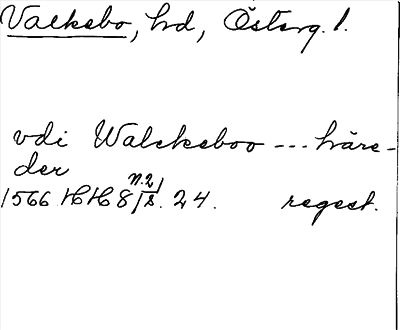 Valkebo, hrd, Österg. l.
vdi Walckeboo --- häre-
der
1566 HH 8 n.2/s. 24. regest.